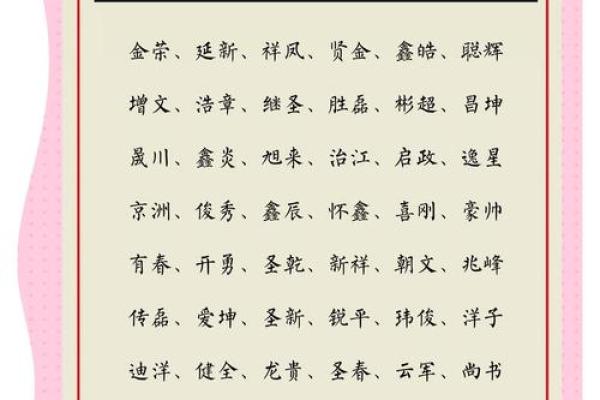 金荣、延新、祥凤、贤金、鑫皓、聪辉
增文、浩章、继圣、胜磊、彬超、昌坤
晟川、鑫炎、旭来、治江、启政、逸星
京洲、俊秀、鑫辰、怀鑫、喜刚、豪帅
有春、开勇、圣乾、新祥、朝文、兆峰
传磊、爱坤、圣新、锐平、玮俊、洋子
迪洋、健全、龙贵、圣春、云军、尚书